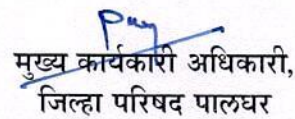 मुख्य कार्यकारी अधिकारी,
जिल्हा परिषद पालघर